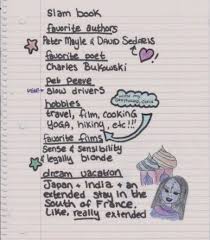 Slam book
favorite authors
Peter Mayle & David Sedaris
favorite poet
Charles Bukowski
pet peeve
slow drivers
hobbies
travel, film, cooking
YOGA, hiking, etc!!!
favorite films
Sense & Sensibility
& legally blonde
dream vacation
Japan + India + an
extended stay in the
South of France.
Like, really extended